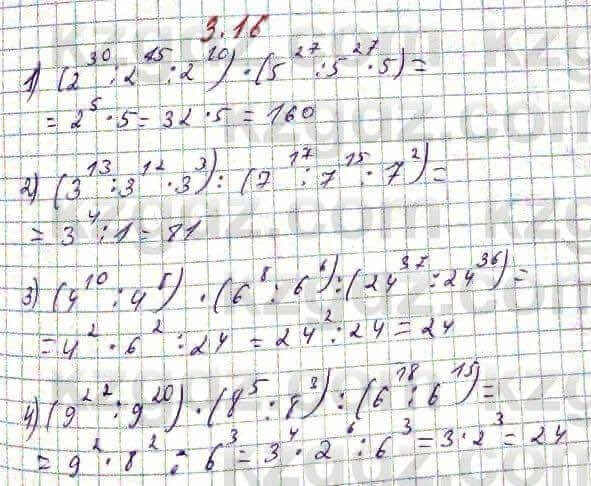 3.16
1) (2³⁰ : 2¹⁵ : 2¹⁰) · (5²⁷ : 5²⁷ · 5) =
= 2⁵ · 5 = 32 · 5 = 160
2) (3¹³ : 3¹² · 3³) : (7¹⁷ : 7¹⁵ : 7²) =
= 3⁴ : 1 = 81
3) (4¹⁰ : 4⁸) · (6⁸ : 6⁶) : (24³⁷ : 24³⁶) =
= 4² · 6² : 24 = 24² : 24 = 24
4) (9²² : 9²⁰) · (8⁵ : 8³) : (6¹⁸ : 6¹⁵) =
= 9² · 8² : 6³ = 3⁴ · 2⁶ : 6³ = 3 · 2³ = 24
kzgdz.com